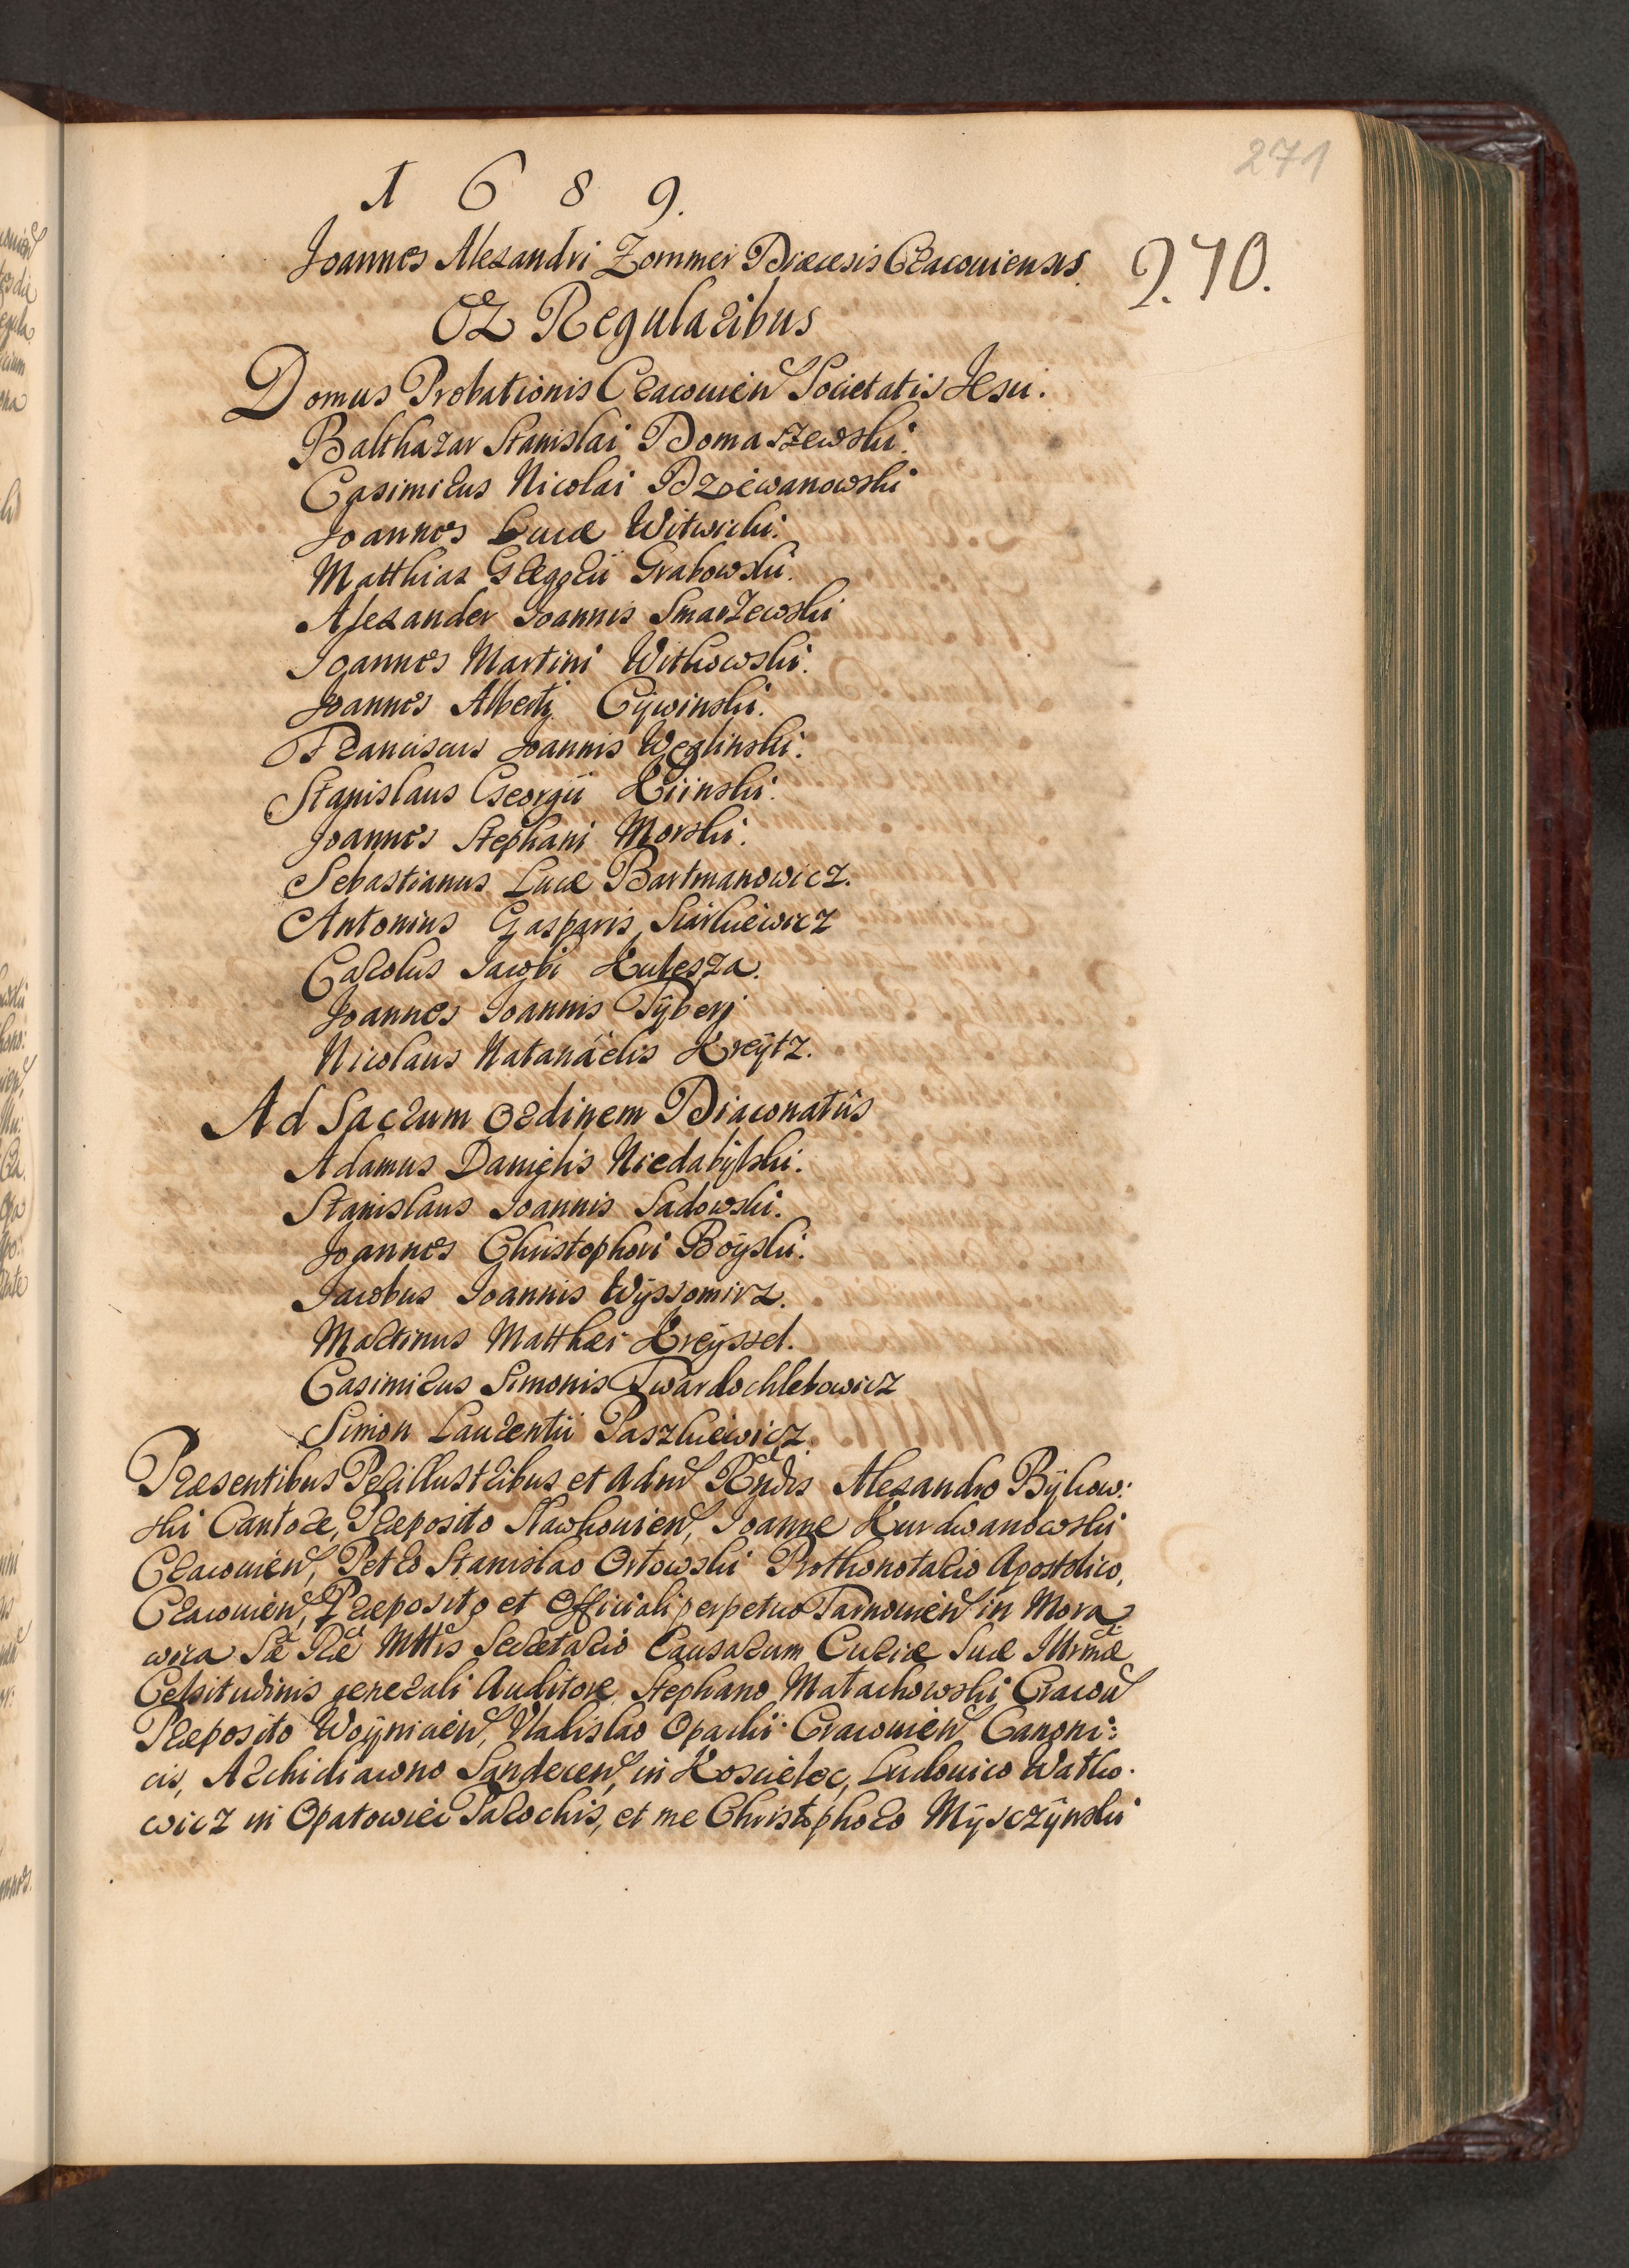 271
1689.
Joannes Alexandri Zommer Diæcesis Cracoviensis.
270.
Ex Regularibus
Domus Probationis Cracovien Societatis Jesu.
Balthazar Stanislai Domaszewski.
Casimirus Nicolai Dziewanowski
Joannes Lucæ Witwicki.
Matthias Gregorii Grabowski.
Alexander Joannis Smarzewski
Joannes Martini Witkowski.
Joannes Alberti Cÿwinski.
Franciscus Joannis Węglinski.
Stanislaus Georgii Kiinski.
Joannes Stephani Morski.
Sebastianus Lucæ Bartmanowicz.
Antonius Gasparis Siarkiewicz
Carolus Jacobi Kulesza.
Joannes Joannis Tÿberj
Nicolaus Natanaëlis Kreÿtz.
Ad Sacrum Ordinem Diaconatûs
Adamus Danielis Niedabÿlski.
Stanislaus Joannis Sadowski.
Joannes Christophori Boÿski.
Jacobus Joannis Wÿssomirz.
Martinus Matthæi Kreÿssel.
Casimirus Simonis Twardochlebowicz
Simon Laurentii Paszkiewicz.
Præsentibus Perillustribus et Adm Rndis Alexandro Bÿkow:
ski Cantore, Præposito Slawkovien, Joanne Kurdwanowski
Cracovien, Petro Stanislao Orłowski Prothonotario Apostolico,
Cracovien, Præposito et Officiali perpetuo Tarnovien in Mora
wica Sæ Ræ Mttis Secretario Causarum Curiæ Suæ Illrmæ
Celsitudinis generali Auditore, Stephano Małachowski Cracov
Præposito Woÿnicien, Vladislao Opacki Cracovien Canoni:
cis, Archidiacono Sandecen, in Koscielec, Ludovico Watko.
wicz in Opatowiec Parochis, et me Christophoro Mÿsczÿnski